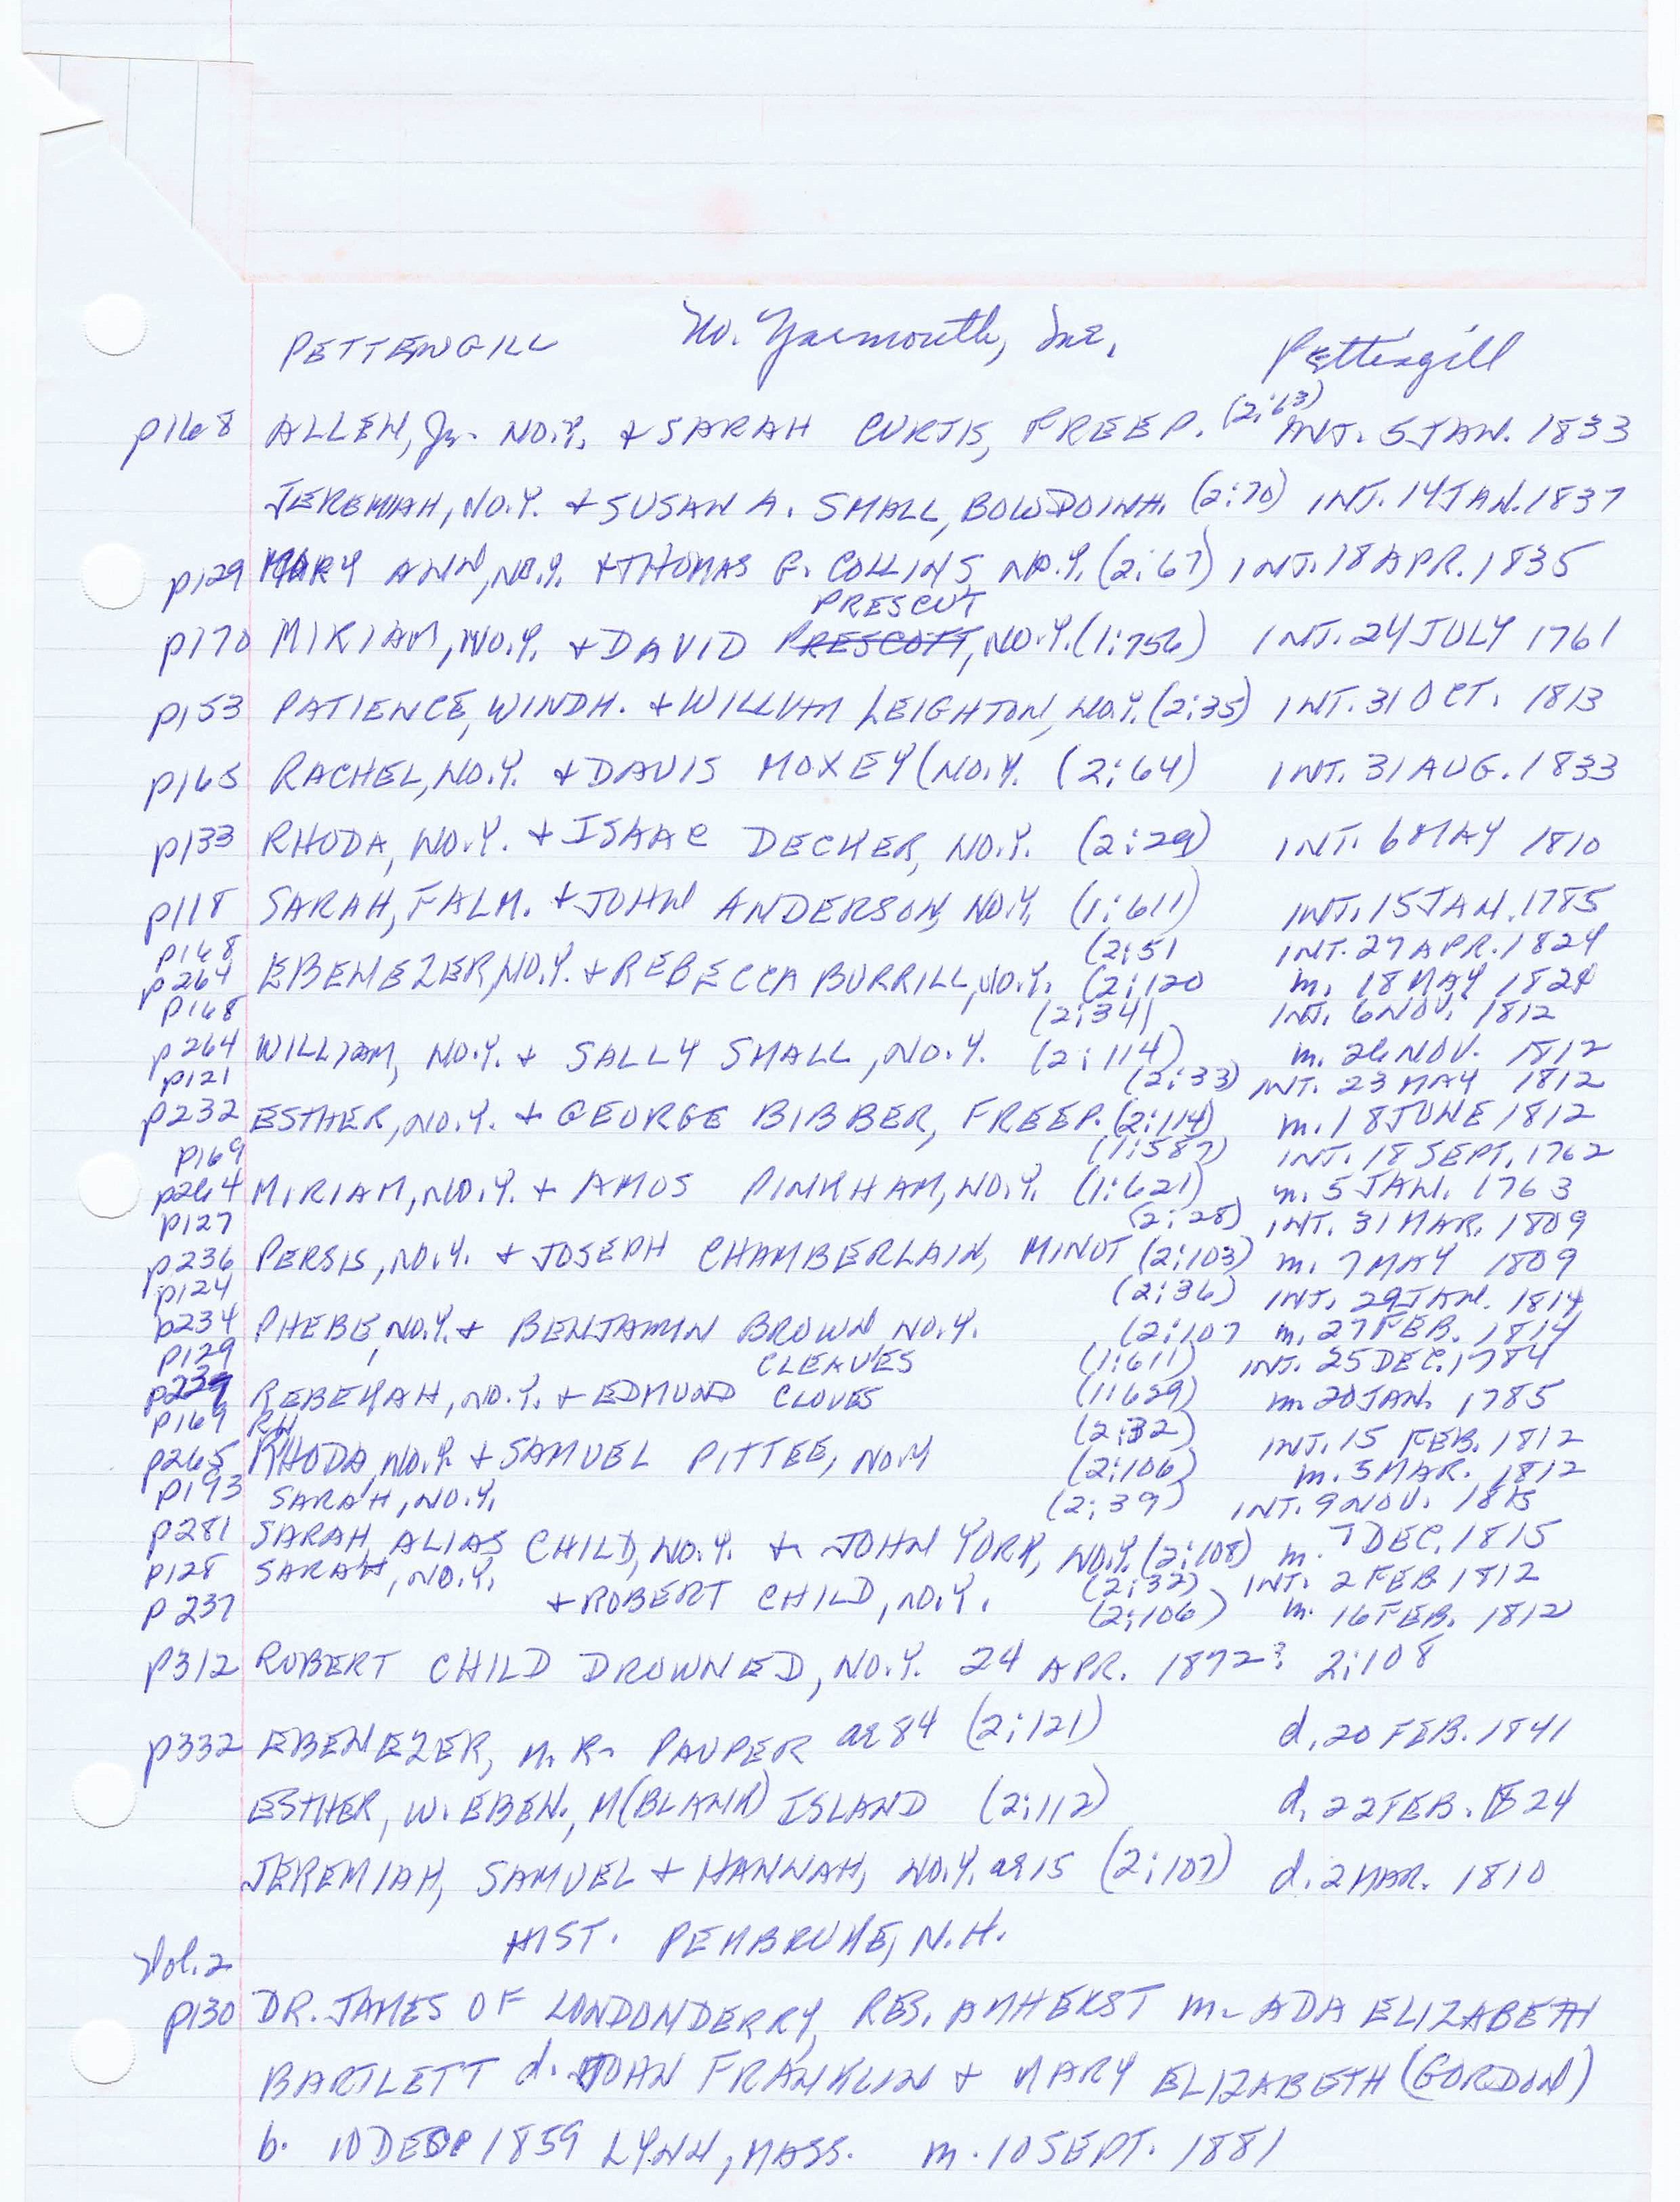 PETTENGILL No. Yarmouth, Me. Pettingill
p168 ALLEN, Jr. NO.Y. + SARAH CURTIS, FREEP. (2:63) INT. 5 JAN. 1833
JEREMIAH, NO.Y. + SUSAN A. SMALL, BOWDOINH. (2:70) INT. 14 JAN. 1837
p129 MARY ANN, NO.Y. + THOMAS G. COLLINS, NO.Y. (2:67) INT. 18 APR. 1835
PRESCUT
p170 MIRIAM, NO.Y. + DAVID PRESCOTT, NO.Y. (1:756) INT. 24 JULY 1761
p153 PATIENCE, WINDH. + WILLIAM LEIGHTON, NO.Y. (2:35) INT. 31 OCT. 1813
p165 RACHEL, NO.Y. + DAVIS MOXEY (NO.Y. (2:64) INT. 31 AUG. 1833
p133 RHODA, NO.Y. + ISAAC DECKER, NO.Y. (2:29) INT. 6 MAY 1810
p118 SARAH, FALM. + JOHN ANDERSON, NO.Y. (1:611) INT. 15 JAN. 1785
p168 (2:51 INT. 27 APR. 1824
p264 EBENEZER, NO.Y. + REBECCA BURRILL, NO.Y. (2:120 m. 18 MAY 1824
p168 (2:34) INT. 6 NOV. 1812
p264 WILLIAM, NO.Y. + SALLY SMALL, NO.Y. (2:114) m. 26 NOV. 1812
p121 (2:33) INT. 23 MAY 1812
p232 ESTHER, NO.Y. + GEORGE BIBBER, FREEP. (2:114) m. 18 JUNE 1812
p169 (1:587) INT. 18 SEPT. 1762
p264 MIRIAM, NO.Y. + AMOS PINKHAM, NO.Y. (1:621) m. 5 JAN. 1763
p127 (2:28) INT. 31 MAR. 1809
p236 PERSIS, NO.Y. + JOSEPH CHAMBERLAIN, MINOT (2:103) m. 7 MAY 1809
p124 (2:36) INT. 29 JAN. 1814
p234 PHEBE, NO.Y. + BENJAMIN BROWN NO.Y. (2:107 m. 27 FEB. 1814
p129 CLEAVES (1:611) INT. 25 DEC. 1784
p237 REBEKAH, NO.Y. + EDMUND CLOVES (1:629) m. 20 JAN. 1785
p169 RH (2:32) INT. 15 FEB. 1812
p265 RHODA, NO.Y. + SAMUEL PITTEE, NO.Y (2:106) m. 5 MAR. 1812
p193 SARAH, NO.Y. (2:39) INT. 9 NOV. 1815
p281 SARAH, ALIAS CHILD, NO.Y. + JOHN YORK, NO.Y. (2:108) m. 7 DEC. 1815
p128 SARAH, NO.Y. (2:32) INT. 2 FEB 1812
p237 + ROBERT CHILD, NO.Y. (2:106) m. 16 FEB. 1812
p312 ROBERT CHILD DROWNED, NO.Y. 24 APR. 1872? 2:108
p332 EBENEZER, m. R. PAUPER ae 84 (2:121) d. 20 FEB. 1841
ESTHER, W. EBEN., M(BLANK) ISLAND (2:112) d. 22 FEB. 1824
JEREMIAH, SAMUEL + HANNAH, NO.Y. ae 15 (2:107) d. 2 MAR. 1810
HIST. PEMBROKE, N.H.
Vol. 2
p130 DR. JAMES OF LONDONDERRY, RES. AMHERST m. ADA ELIZABETH
BARTLETT d. JOHN FRANKLIN + MARY ELIZABETH (GORDON)
b. 10 DEC 1859 LYNN, MASS. m. 10 SEPT. 1881